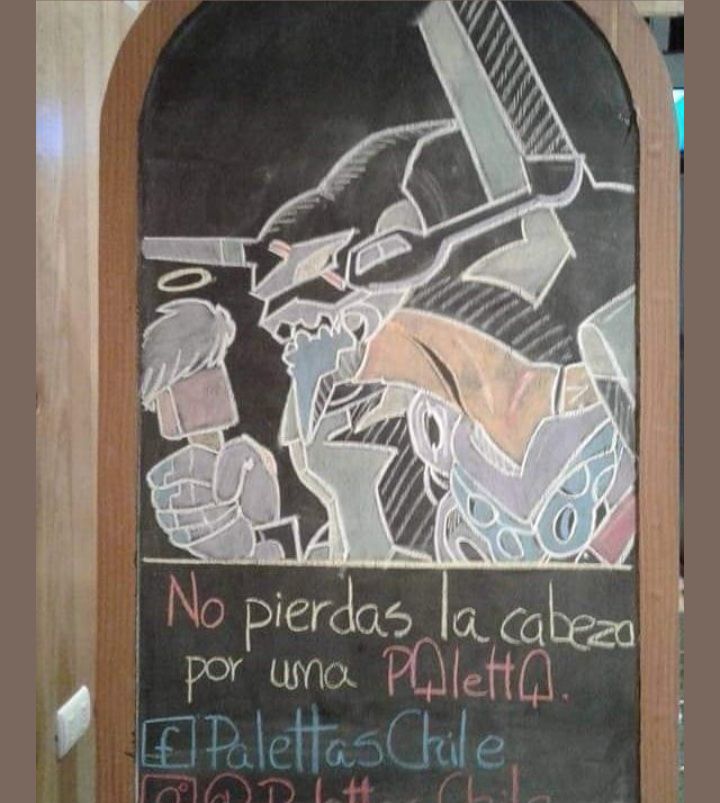 No pierdas la cabeza
por una PAlettA.
f PalettasChile
@Palettas Chile